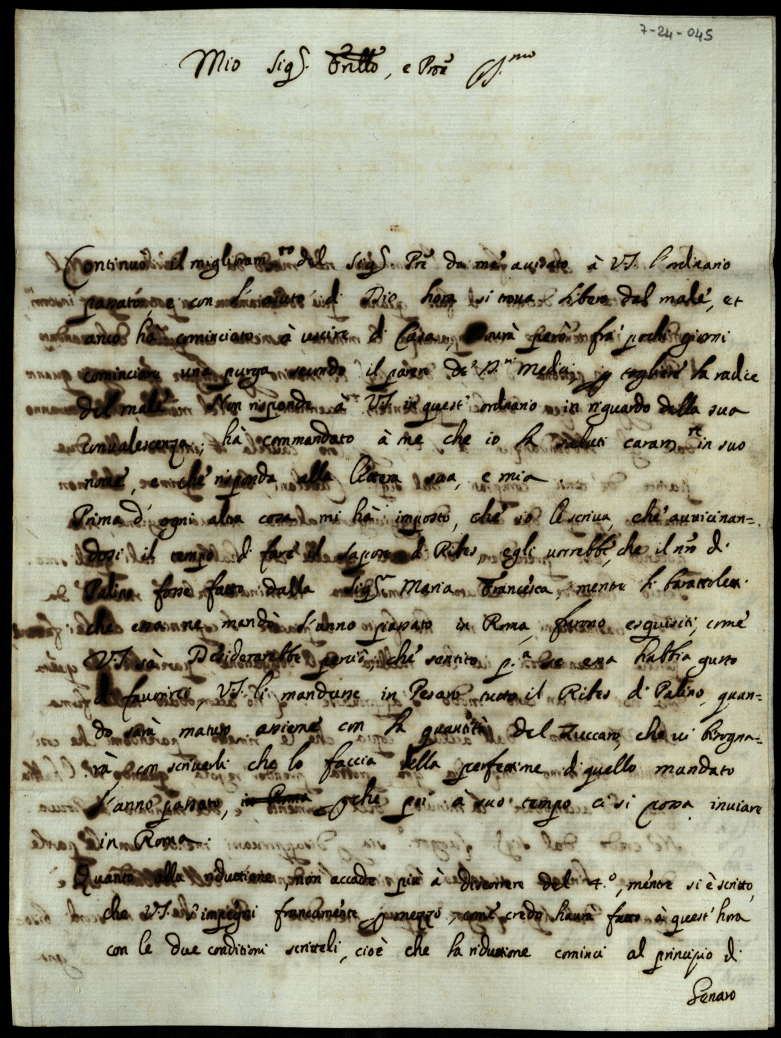 7-24-045
Mio Sig.r Frillo, e Pron
Continuò il miglioram.to del Sig.r Prè da mè auisato à VS. l'ordinario
passato, e con l'aiuto di Dio hora si troua libero dal male, et
anco hà cominciato à uscire di Casa, però frà pochi giorni
cominciare una purga secondo il parere de Medici p togliere la radice
del male. Non risponde à VS. in quest'ordinario in riguardo della sua
conualescenza; hà commandato à me che io la saluti caram.te in suo
nome, e che risponda alla lettera sua, e mia.
Prima d'ogni altra cosa mi hà imposto, che io le scriua, che auuicinan=
dosi il tempo di fare il sapore di Ribes, egli uorrebbe, che il nro di
Palino fosse fatto dalla Sig.ra Maria Francesca, mentre li barattolett.
che essa ne mandò l'anno passato in Roma, furono esquisiti, come
VS. sà. Desiderarebbe perciò che sentito p.a se essa habbia gusto
di fauorirci VS. li mandasse in Pesaro tutto il Ribes di Palino, quan=
do sarà maturo assieme con la quantità del Zuccaro, che ui bisogna=
rà, con scriuerli che lo faccia della perfettione di quello mandato
l'anno passato, in Roma pche poi à suo tempo ci si possa inuiare
in Roma.
Quanto alla riduttione, non accade più à discorrere del 4.o, mentre si è scritto,
che VS. s'impegni francamente p mezzo, come credo haurà fatto à quest'hora
con le due conditioni scritteli, cioè che la riduttione cominci al principio di
Genaro